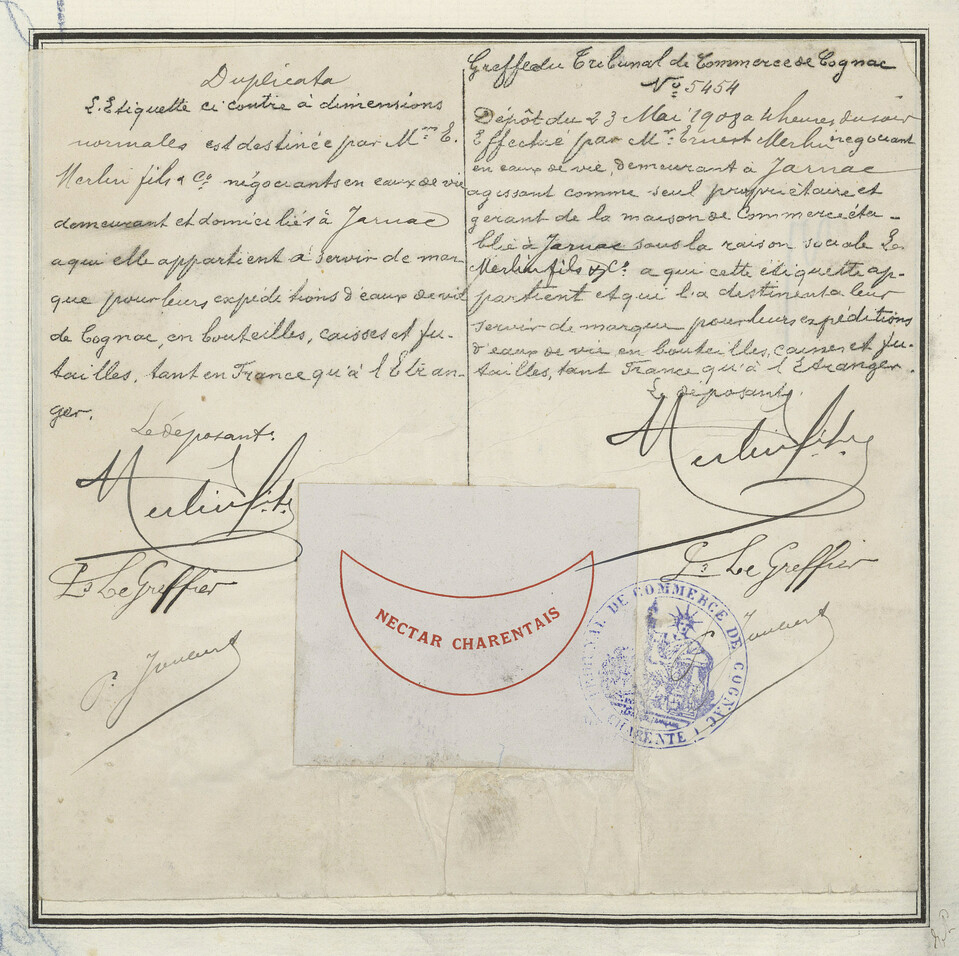 Duplicata
L'Etiquette ci contre à dimensions
normales est destinée par Mrs E.
Merlin fils & Co négociants en eaux de vie
demeurant et domiciliés à Jarnac
a qui elle appartient à servir de mar-
que pour leurs expéditions d'eaux de vie
de Cognac, en bouteilles, caisses et fu-
tailles, tant en France qu'à l'Etran-
ger.
Le déposant.
Merlin fils
Pr Le Greffier
Greffe du Tribunal de Commerce de Cognac
No 5454
Dépôt du 23 Mai 1908 à 4 heures du soir
Effectué par Mr Ernest Merlin négociant
en eaux de vie, demeurant à Jarnac
agissant comme seul propriétaire et
gérant de la maison de Commerce éta-
blie à Jarnac sous la raison sociale E.
Merlin fils & Co a qui cette étiquette ap-
partient et qui l'a destine à leur
servir de marque pour leurs expéditions
d'eaux de vie en bouteilles, caisses et fu-
tailles, tant France qu'à l'Etranger.
Le déposant.
Merlin fils
Pr Le Greffier
NECTAR CHARENTAIS
TRIBUNAL DE COMMERCE DE COGNAC
CHARENTE